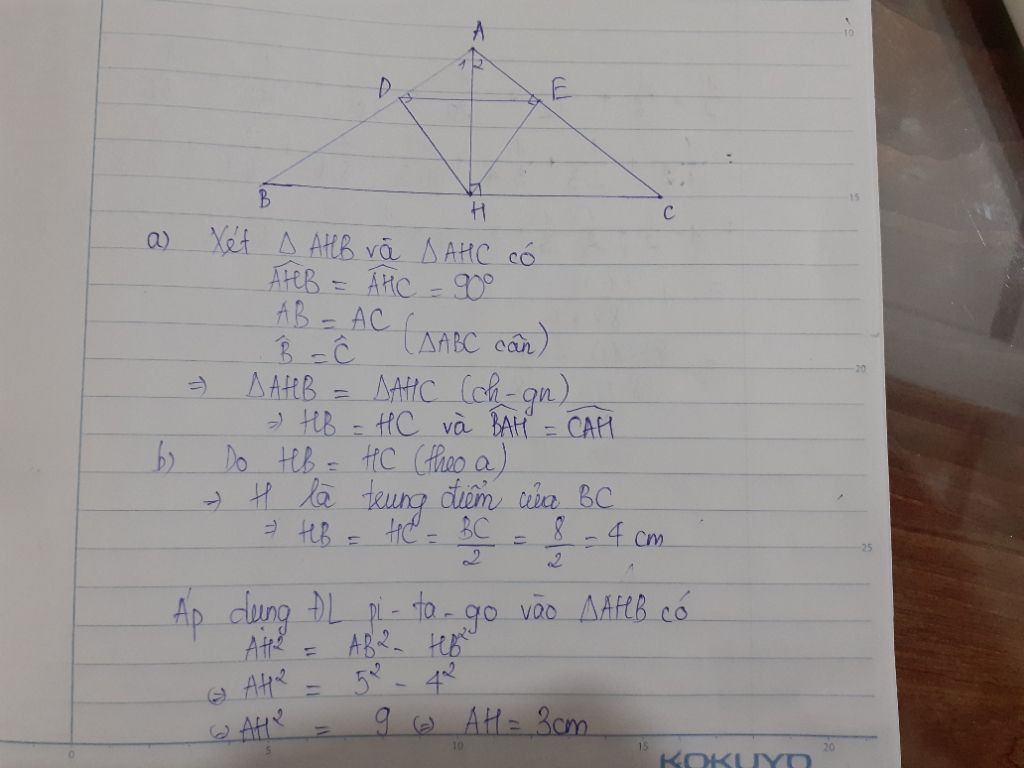 A
1 2
D E
B H C
a) Xét △ AHB và △AHC có
\widehat{AHB} = \widehat{AHC} = 90°
AB = AC
B̂ = Ĉ (△ABC cân)
⇒ △AHB = △AHC (ch-gn)
⇒ HB = HC và \widehat{BAH} = \widehat{CAH}
b) Do HB = HC (theo a)
⇒ H là trung điểm của BC
⇒ HB = HC = BC/2 = 8/2 = 4 cm
Áp dụng ĐL pi-ta-go vào △AHB có
AH² = AB² - HB²
⇔ AH² = 5² - 4²
⇔ AH² = 9 ⇔ AH = 3cm
10
15
20
25
0 5 10 15 20
KOKUYO